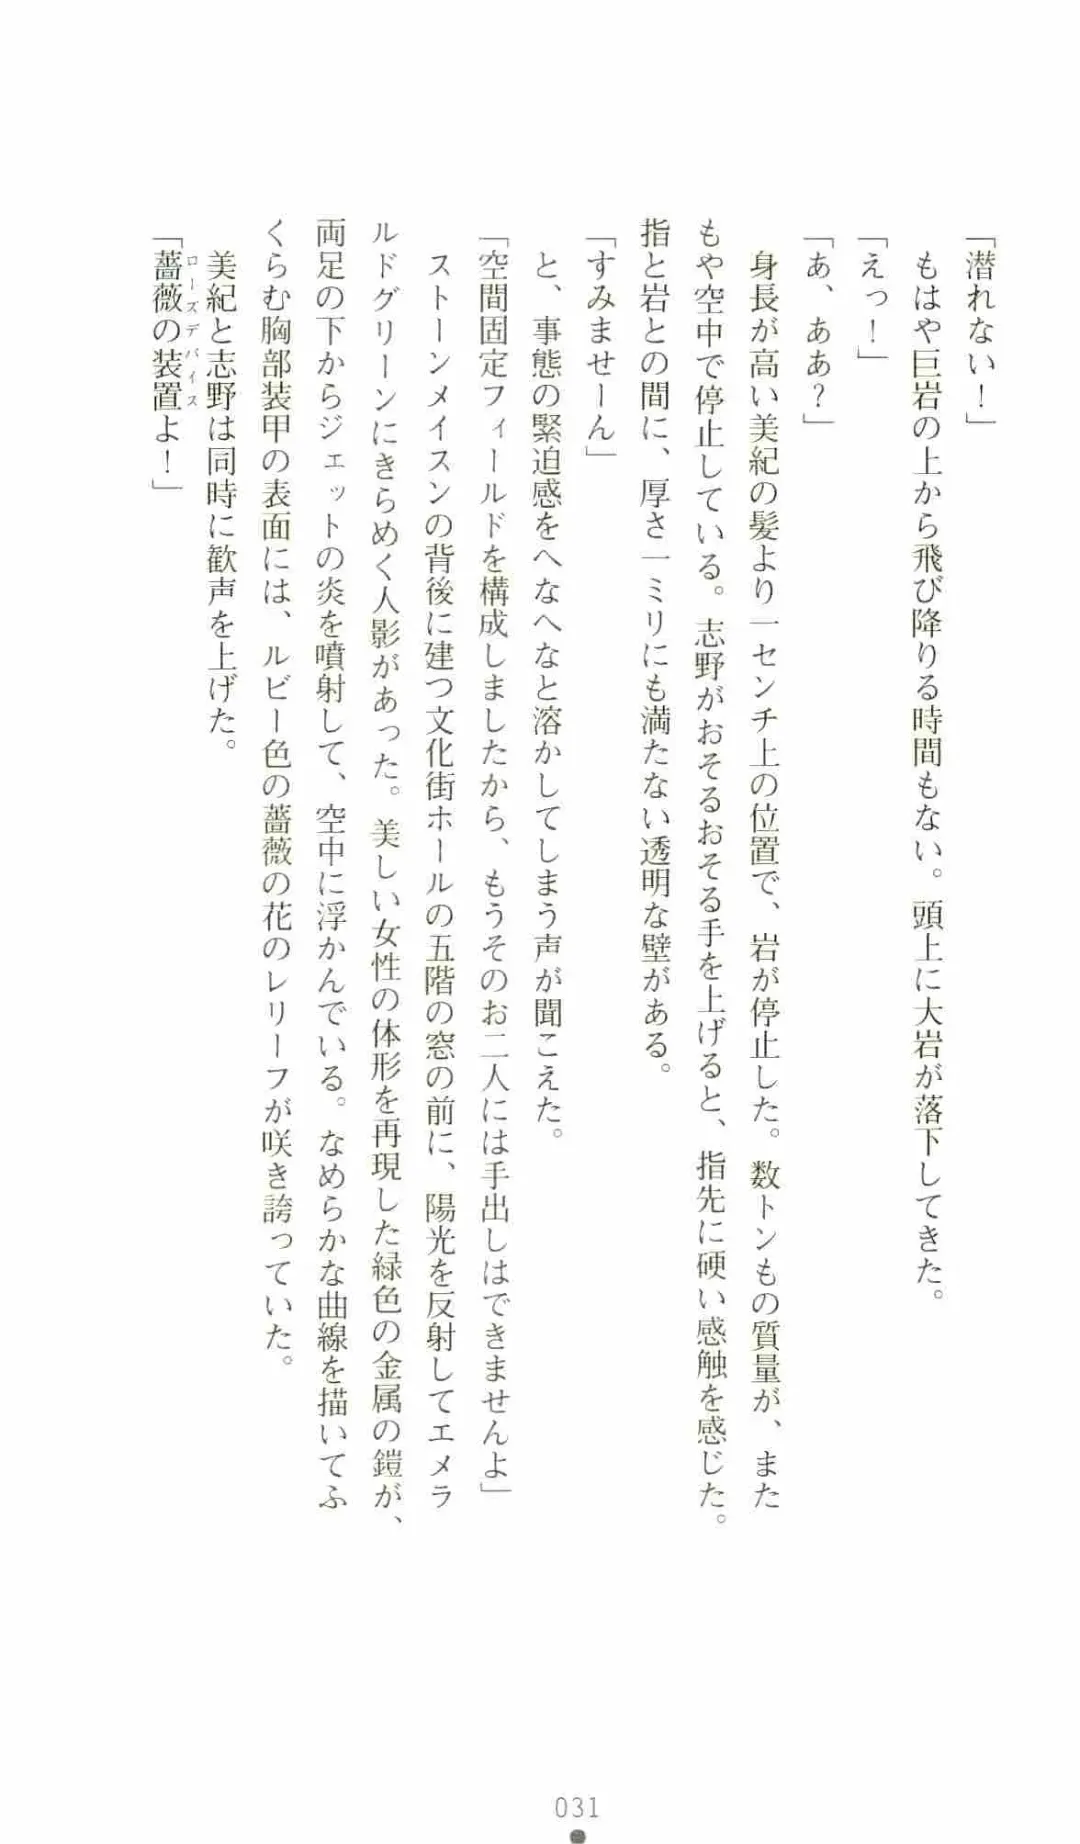 「潜れない！」
もはや巨岩の上から飛び降りる時間もない。頭上に大岩が落下してきた。
「えっ！」
「あ、ああ？」
身長が高い美紀の髪より一センチ上の位置で、岩が停止した。数トンもの質量が、また
もや空中で停止している。志野がおそるおそる手を上げると、指先に硬い感触を感じた。
指と岩との間に、厚さ一ミリにも満たない透明な壁がある。
「すみませーん」
と、事態の緊迫感をへなへなと溶かしてしまう声が聞こえた。
「空間固定フィールドを構成しましたから、もうそのお二人には手出しはできませんよ」
ストーンメイスンの背後に建つ文化街ホールの五階の窓の前に、陽光を反射してエメラ
ルドグリーンにきらめく人影があった。美しい女性の体形を再現した緑色の金属の鎧が、
両足の下からジェットの炎を噴射して、空中に浮かんでいる。なめらかな曲線を描いてふ
くらむ胸部装甲の表面には、ルビー色の薔薇の花のレリーフが咲き誇っていた。
美紀と志野は同時に歓声を上げた。
ローズデバイス
「薔薇の装置よ！」
031